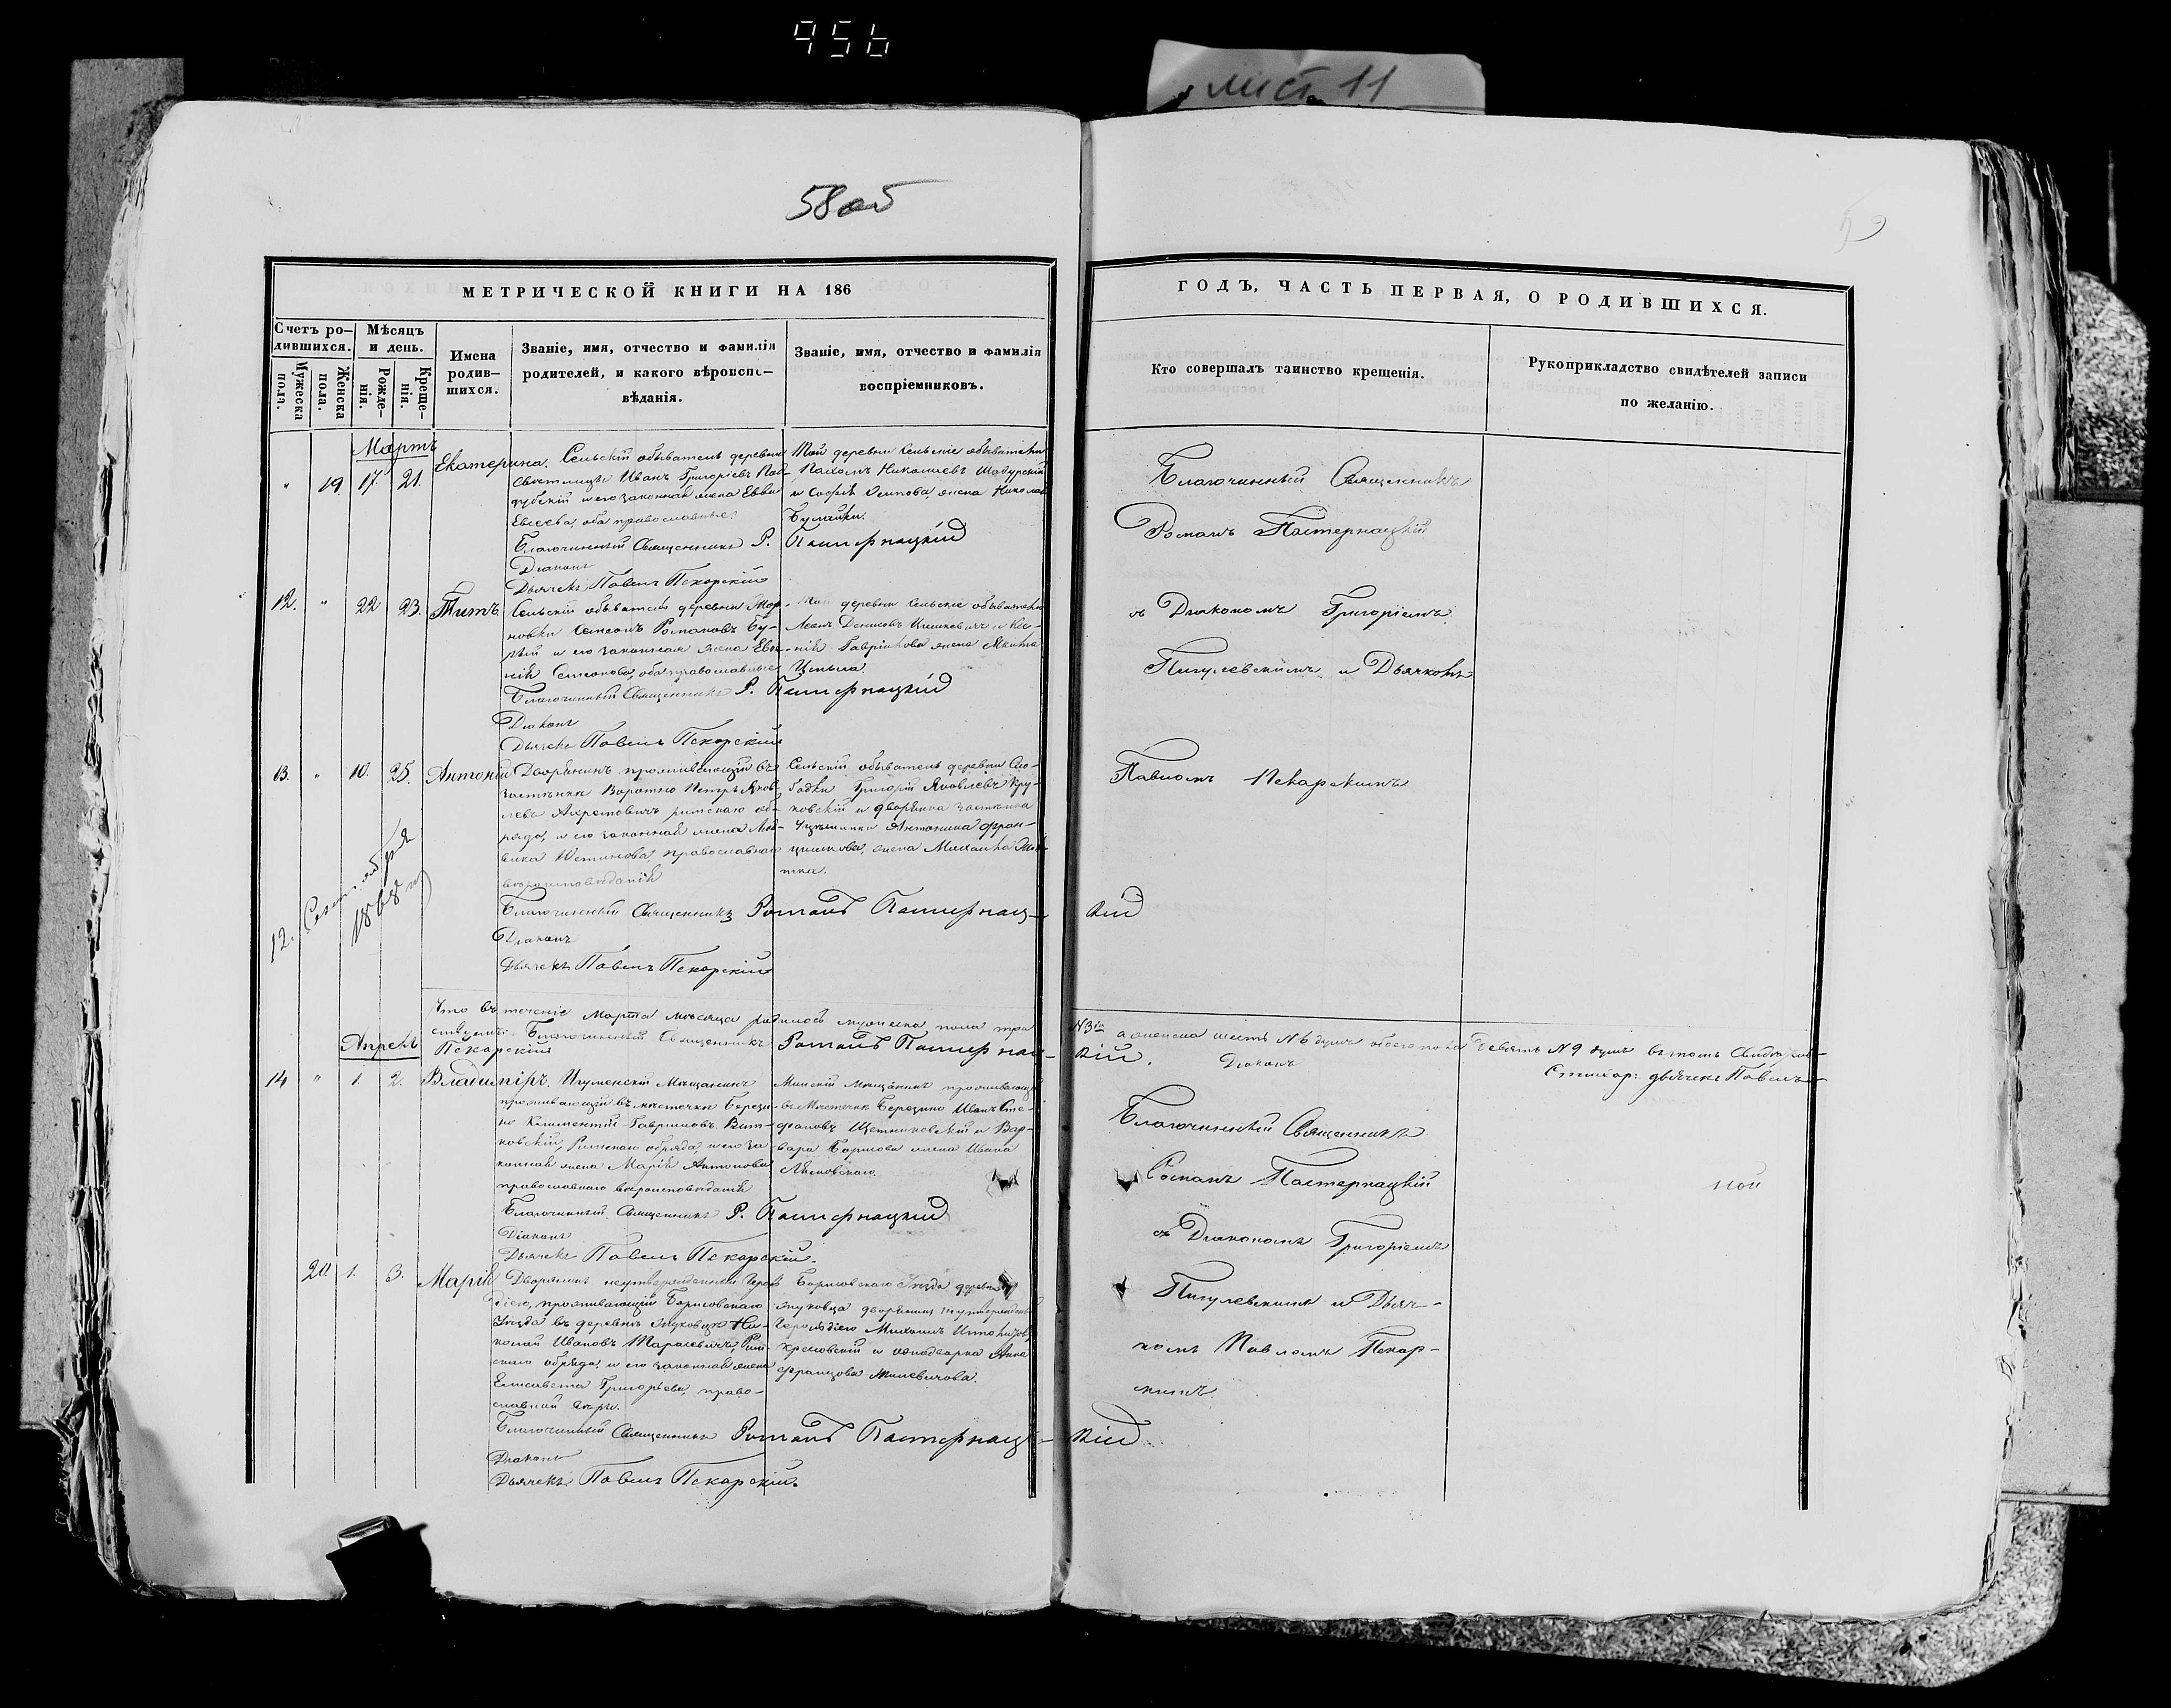 956
лист 11
58об
59
МЕТРИЧЕСКОЙ КНИГИ НА 186
ГОДЪ, ЧАСТЬ ПЕРВАЯ, О РОДИВШИХСЯ.
Счетъ ро–
дившихся.
Мужеска
пола.
Женска
пола.
Мѣсяцъ
и день.
Рожде–
нія.
Креще–
нія.
Имена
родив–
шихся.
Званіе, имя, отчество и фамилія
родителей, и какого вѣроиспо–
вѣданія.
Званіе, имя, отчество и фамилія
воспріемниковъ.
Кто совершалъ таинство крещенія.
Рукоприкладство свидѣтелей записи
по желанію.
Мартъ
" 19. 17. 21. Екатерина.
Сельскій обыватель деревни
Иванъ Григоріевъ
и его законная жена
Евсеева, оба православные.
Благочинный Священникъ Р. Пастернацкій
Діаконъ
Дьячекъ Павелъ Пекарскій
Той деревни сельскіе обыватели
Пахомъ Николаевъ
и Софія Осипова, жена Николая
12. " 22 23. Титъ.
Сельскій обыватель деревни Мар–
новки Семеонъ Романовъ Бу–
и его законная жена Евге–
нія Семенова, оба православные
Благочинный Священникъ Р. Пастернацкій
Діаконъ
Дьячекъ Павелъ Пекарскій
Той деревни сельскіе обыватели
Леонъ Денисовъ
Гаврилова жена Никита
13. " 10. 25. Антоній
Дворянинъ проживающій въ
застѣнкѣ Воротно Петръ Яков–
левъ Ахремовичъ римскаго об–
ряда, и его законная жена Лю–
вика Устинова, православнаго
вѣроисповѣданія
Благочинный Священникъ Романъ Пастернац–кій
Діаконъ
Дьячекъ Павелъ Пекарскій
Сельскій обыватель деревни Сло–
бодки Григорій Яковлевъ Кру–
ковскій и дворянка застѣнка
Антонина Фран–
цишкова, жена Михаила
12. Сентября
1868 г
Благочинный Священникъ
Романъ Пастернацкій
съ Діакономъ Григоріемъ
Пигулевскимъ и Дьячкомъ
Павломъ Пекарскимъ
Что въ теченіе Марта мѣсяца родилось мужеска пола три N 3 а женска шесть N 6 душъ обоего пола девять N 9 душъ въ томъ свидѣтель–
ствуемъ: Благочинный Священникъ Романъ Пастернац–кій. Діаконъ дьячекъ Павелъ
Пекарскій
Апрель
14 " 1. 2. Владиміръ.
Игуменскій Мѣщанинъ
проживающій въ мѣстечкѣ Берези–
но Климентій Гавриловъ Вит–
ковскій, Римскаго обряда, и его за
конная жена Марія Антонова
православнаго вѣроисповѣданія
Благочинный Священникъ Р. Пастернацкій
Діаконъ
Дьячекъ Павелъ Пекарскій.
Минскій Мѣщанинъ проживающій
въ Мѣстечкѣ Березино Иванъ Сте–
фановъ и Вар–
вара Борисова жена Ивана
Лясковскаго.
Благочинный Священникъ
Романъ Пастернацкій
съ Діакономъ Григоріемъ
Пигулевскимъ и Дьяч–
комъ Павломъ Пекар–
скимъ.
20. 1. 3. Марія
Дворянинъ неутвержденный Герольдіею, проживающій Борисовскаго
Уѣзда въ деревнѣ Жуковцѣ Ни–
колай Ивановъ Тарасевичъ, Рим–
скаго обряда, и его законная жена
Елисавета Григорьева, право–
славной вѣры.
Благочинный Священникъ Романъ Пастернац–кій
Діаконъ
Дьячекъ Павелъ Пекарскій.
Борисовскаго Уѣзда деревни
Жуковца дворянинъ неутвержденный
Герольдіею Михаилъ
и однодворка Анна
Францова Милевичова.